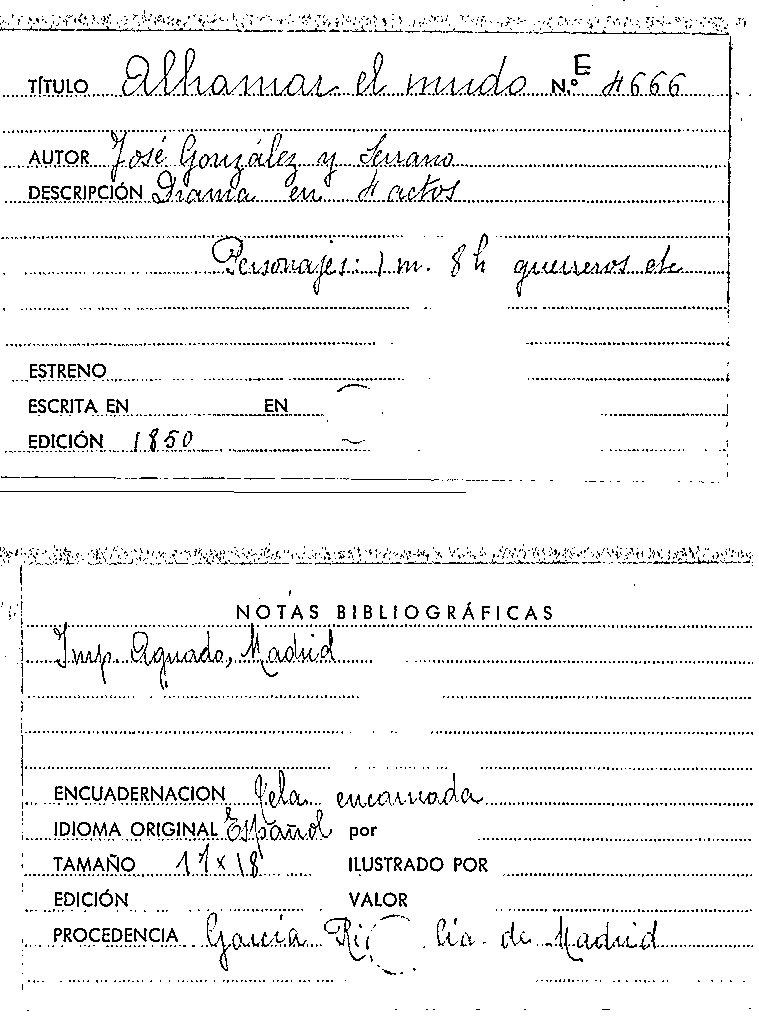 TÍTULO Alhamar el mudo N.º E 4666
AUTOR José González y Serrano
DESCRIPCIÓN Drama en 4 actos
Personajes: 1 m. 8 h guerreros etc
ESTRENO
ESCRITA EN EN
EDICIÓN 1850
NOTAS BIBLIOGRÁFICAS
Imp. Aguado, Madrid
ENCUADERNACION tela encarnada
IDIOMA ORIGINAL Español por
TAMAÑO 11 x 18 ILUSTRADO POR
EDICIÓN VALOR
PROCEDENCIA García Ri Cía. de Madrid